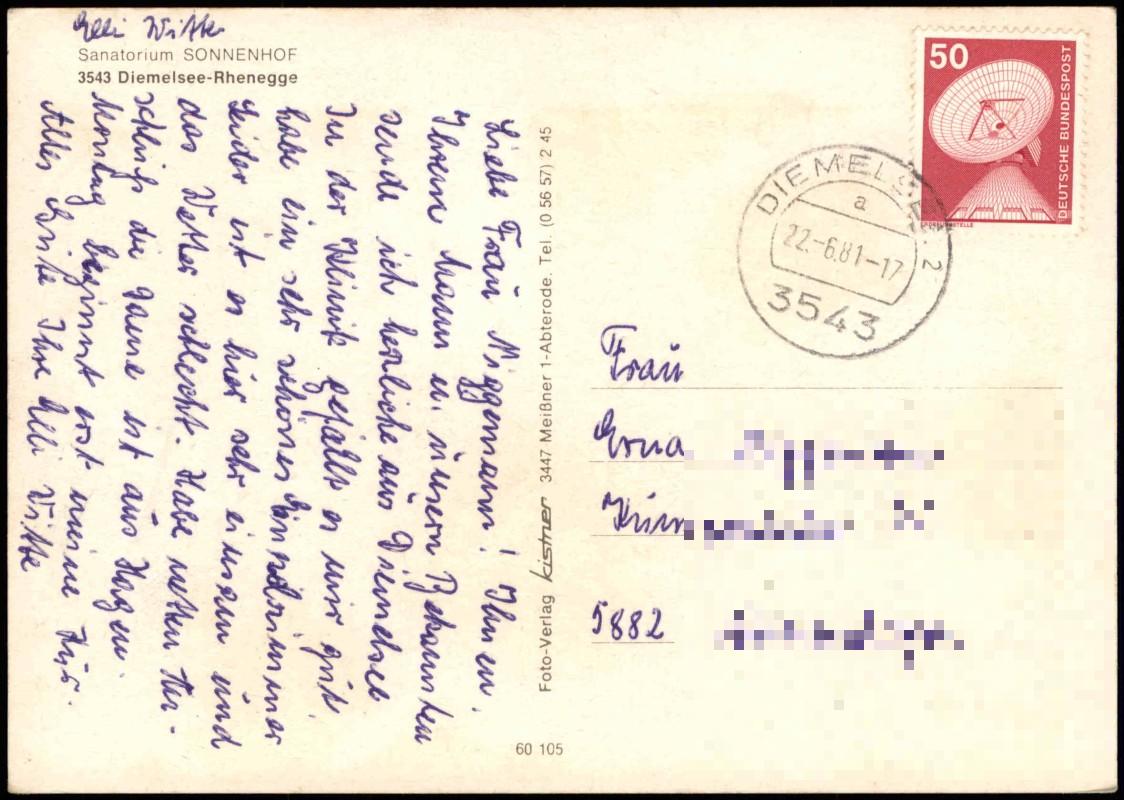 Elli Witte
Sanatorium SONNENHOF
3543 Diemelsee-Rhenegge
Liebe Frau Niggemann! Ihnen u.
Ihrem Mann u. unsern Bekannten
sende ich herzliche aus Diemelsee
In der Klinik gefällt es mir gut.
habe ein sehr schönes Einzelzimmer
Leider ist es hier sehr einsam und
das Wetter schlecht. Habe netten
schluß die Dame ist aus Hagen.
Montag beginnt erst meine Kur.
Alles Gute Ihre Elli Witte
Foto-Verlag kistner 3447 Meißner 1-Abterode. Tel. (0 56 57) 2 45
60 105
50
DEUTSCHE BUNDESPOST
DIEMELSEE 2
a
22.-6.81-17
3543
Frau
Erna
5882